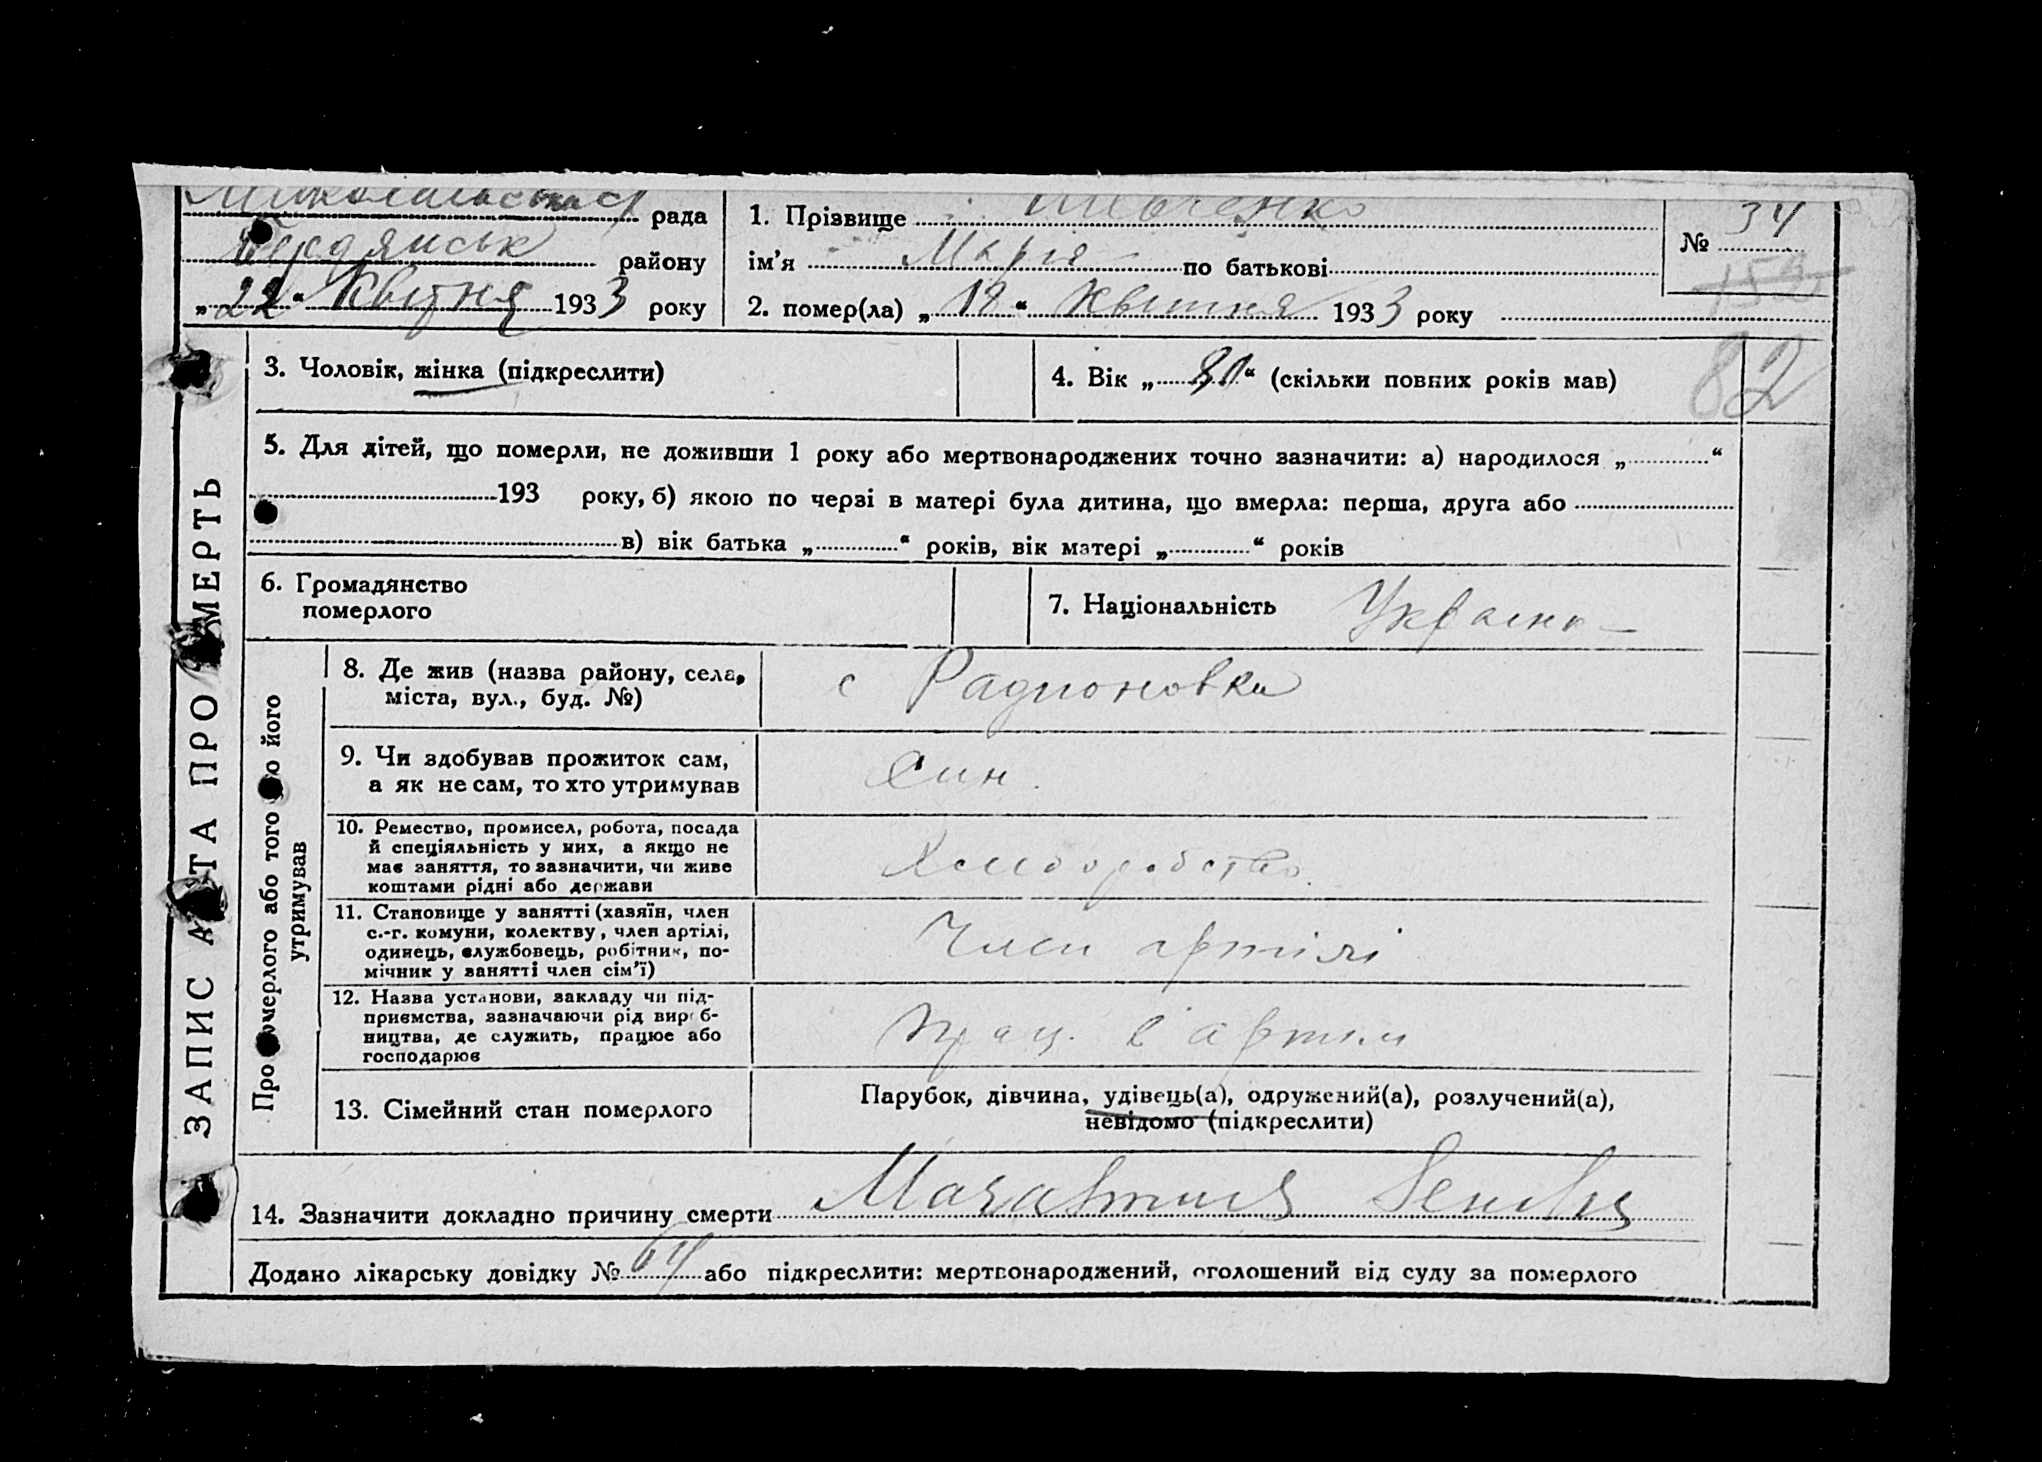 Миколаївська рада
Бердянськ району
„22“ Квітня 1933 року
1. Прізвище Шевченко
ім'я Марія по батькові
2. помер(ла) „18“ Квітня 1933 року
№ 34
152
82
ЗАПИС АКТА ПРО СМЕРТЬ
3. Чоловік, жінка (підкреслити)
4. Вік „80“ (скільки повних років мав)
5. Для дітей, що померли, не доживши 1 року або мертвонароджених точно зазначити: а) народилося „ “
193 року, б) якою по черзі в матері була дитина, що вмерла: перша, друга або
в) вік батька „ “ років, вік матері „ “ років
6. Громадянство
померлого
7. Національність Україн
Про померлого або того хто його
утримував
8. Де жив (назва району, села,
міста, вул., буд. №)
с Радионовки
9. Чи здобував прожиток сам,
а як не сам, то хто утримував
Син.
10. Ремество, промисел, робота, посада
й спеціяльність у них, а якщо не
має заняття, то зазначити, чи живе
коштами рідні або держави
Хлеборобство.
11. Становище у занятті (хазяїн, член
с.-г. комуни, колектву, член артілі,
одинець, службовець, робітник, по-
мічник у занятті член сім'ї)
Член артілі
12. Назва установи, закладу чи під-
приємства, зазначаючи рід вироб-
ництва, де служить, працює або
господарює
прац. в артили
13. Сімейний стан померлого
Парубок, дівчина, удівець(а), одружений(а), розлучений(а),
невідомо (підкреслити)
14. Зазначити докладно причину смерти
Додано лікарську довідку № 64 або підкреслити: мертвонароджений, оголошений від суду за померлого